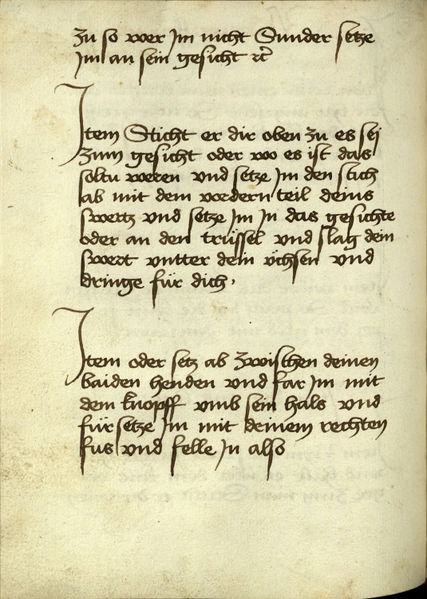 zu so wer Im nicht Sunder setze
Im an sein gesicht rc
Item Sticht er dir oben zu es sej
zum gesicht oder wo es ist das
soltu weren vnd setze Im den stich
ab mit dem vordern teil deins
swertz vnd setze Im In das gesichte
oder an den trüssel vnd slag dein
swert vntter dein vchsen vnd
dringe für dich
Item oder setz ab zwischen deinen
baiden henden vnd far Im mit
dem knopff vmb sein hals vnd
fürsetze Im mit deinem rechten
fus vnd felle In also